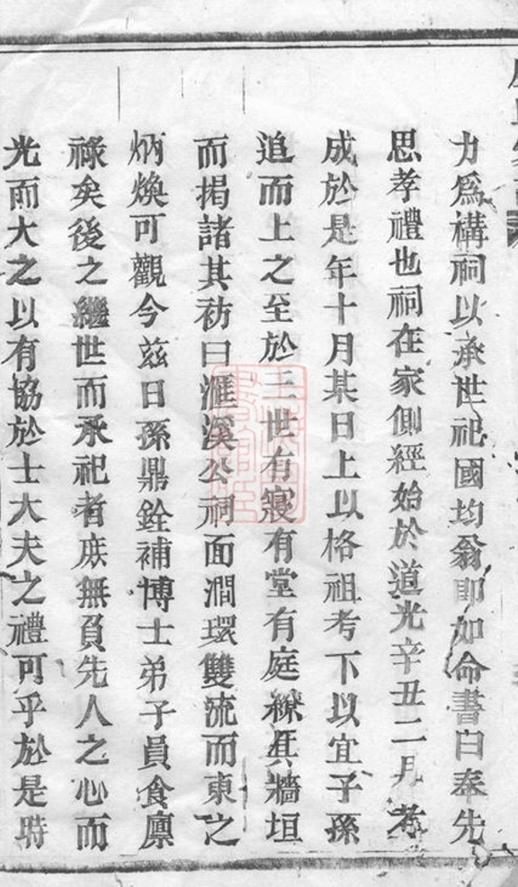 力爲構祠以承世祀國均翁即如命書曰奉先
思孝禮也祠在家側經始於道光辛丑二月考
成於是年十月某日上以格祖考下以宜子孫
追而上之至於三世有寢有堂有庭繚其牆垣
而揭諸其祊曰滙溪公祠面澗環雙流而東之
炳煥可觀今茲日孫鼎銓補博士弟子員食廪
祿矣後之繼世而承祀者庻無負先人之心而
光而大之以有協於士大夫之禮可乎於是時